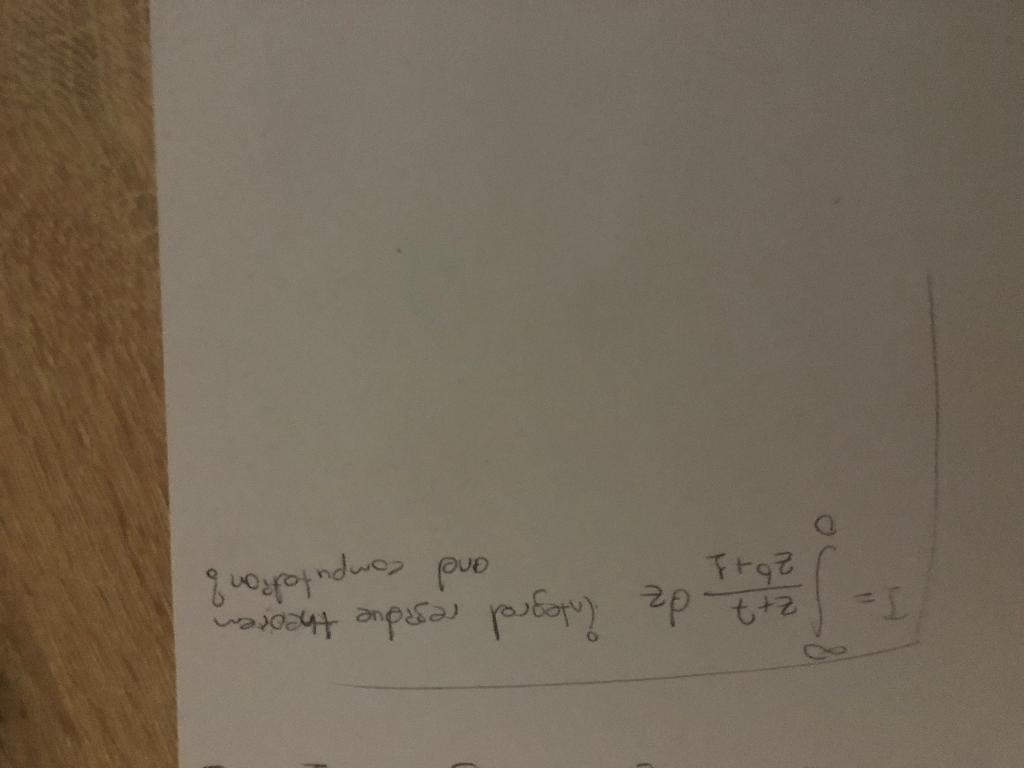 I = ∫₀^∞ (z+7)/(z⁶+1) dz integral residue theorem
and computation?